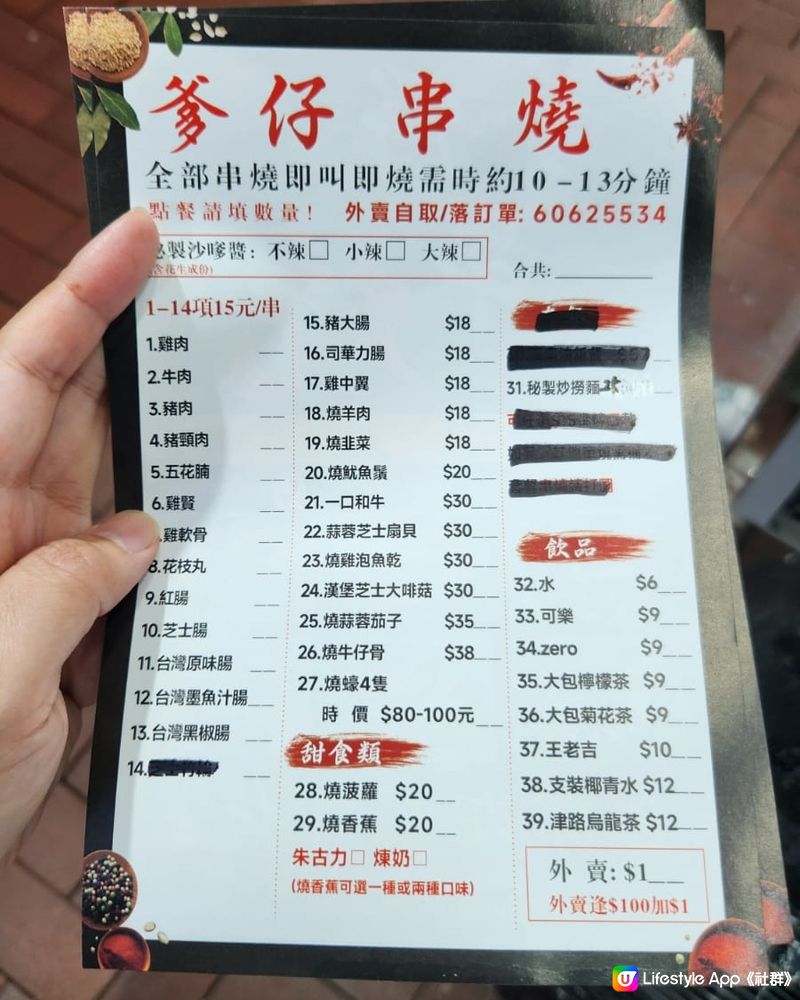 爹仔串燒
全部串燒即叫即燒需時約10-13分鐘
點餐請填數量! 外賣自取/落訂單: 60625534
製沙嗲醬: 不辣□ 小辣□ 大辣□
含花生成份)
合共:
1-14項15元/串
1.雞肉
2.牛肉
3.豬肉
4.豬頸肉
5.五花腩
6.雞賢
雞軟骨
8.花枝丸
9.紅腸
10.芝士腸
11.台灣原味腸
12.台灣墨魚汁腸
13.台灣黑椒腸
14.
15.豬大腸 $18
16.司華力腸 $18
17.雞中翼 $18
18.燒羊肉 $18
19.燒韭菜 $18
20.燒魷魚鬚 $20
21.一口和牛 $30
22.蒜蓉芝士扇貝 $30
23.燒雞泡魚乾 $30
24.漢堡芝士大啡菇 $30
25.燒蒜蓉茄子 $35
26.燒牛仔骨 $38
27.燒蠔4隻
時 價 $80-100元
甜食類
28.燒菠蘿 $20
29.燒香蕉 $20
朱古力□ 煉奶□
(燒香蕉可選一種或兩種口味)
31.秘製炒撈麵
飲品
32.水 $6
33.可樂 $9
34.zero $9
35.大包檸檬茶 $9
36.大包菊花茶 $9
37.王老吉 $10
38.支裝椰青水 $12
39.津路烏龍茶 $12
外 賣: $1
外賣逢$100加$1
Lifestyle App《社群》